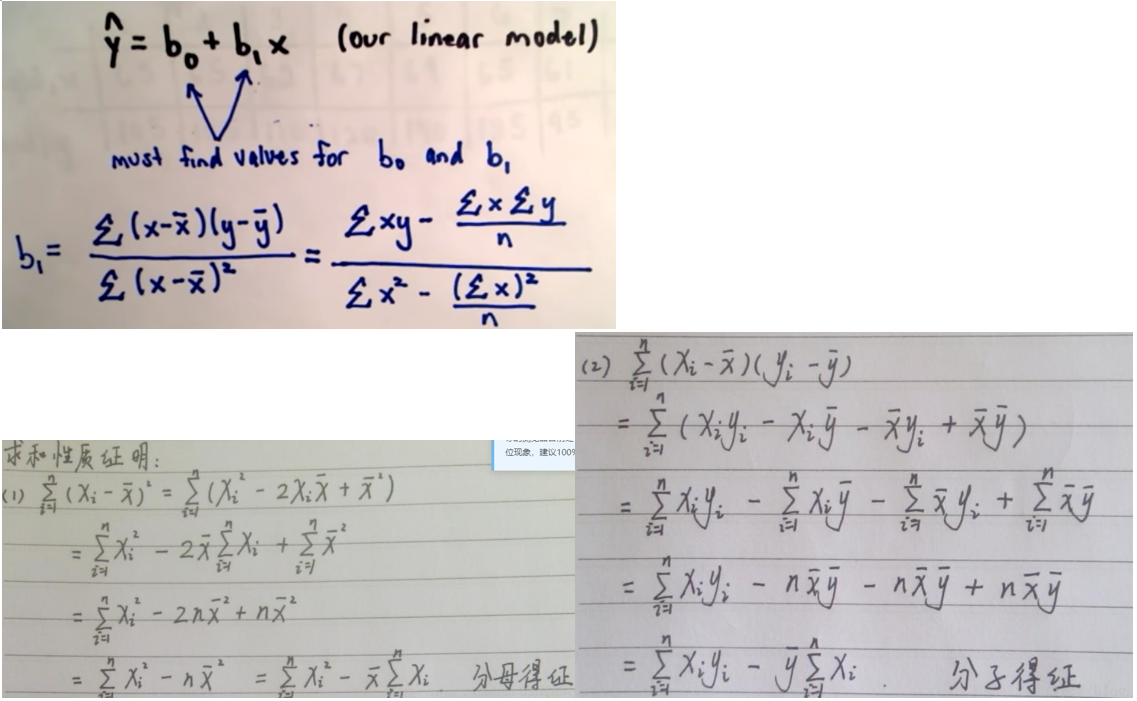 ŷ = b₀ + b₁x (our linear model)
must find values for b₀ and b₁
b₁ = Σ(x-x̄)(y-ȳ) / Σ(x-x̄)² = (Σxy - ΣxΣy/n) / (Σx² - (Σx)²/n)
位现象，建议100%
求和性质证明:
(1) Σᵢ₌₁ⁿ (xᵢ - x̄)² = Σᵢ₌₁ⁿ (xᵢ² - 2xᵢx̄ + x̄²)
= Σᵢ₌₁ⁿ xᵢ² - 2x̄ Σᵢ₌₁ⁿ xᵢ + Σᵢ₌₁ⁿ x̄²
= Σᵢ₌₁ⁿ xᵢ² - 2nx̄² + nx̄²
= Σᵢ₌₁ⁿ xᵢ² - nx̄² = Σᵢ₌₁ⁿ xᵢ² - x̄ Σᵢ₌₁ⁿ xᵢ 分母得证
(2) Σᵢ₌₁ⁿ (xᵢ - x̄)(yᵢ - ȳ)
= Σᵢ₌₁ⁿ (xᵢyᵢ - xᵢȳ - x̄yᵢ + x̄ȳ)
= Σᵢ₌₁ⁿ xᵢyᵢ - Σᵢ₌₁ⁿ xᵢȳ - Σᵢ₌₁ⁿ x̄yᵢ + Σᵢ₌₁ⁿ x̄ȳ
= Σᵢ₌₁ⁿ xᵢyᵢ - nx̄ȳ - nx̄ȳ + nx̄ȳ
= Σᵢ₌₁ⁿ xᵢyᵢ - ȳ Σᵢ₌₁ⁿ xᵢ. 分子得证